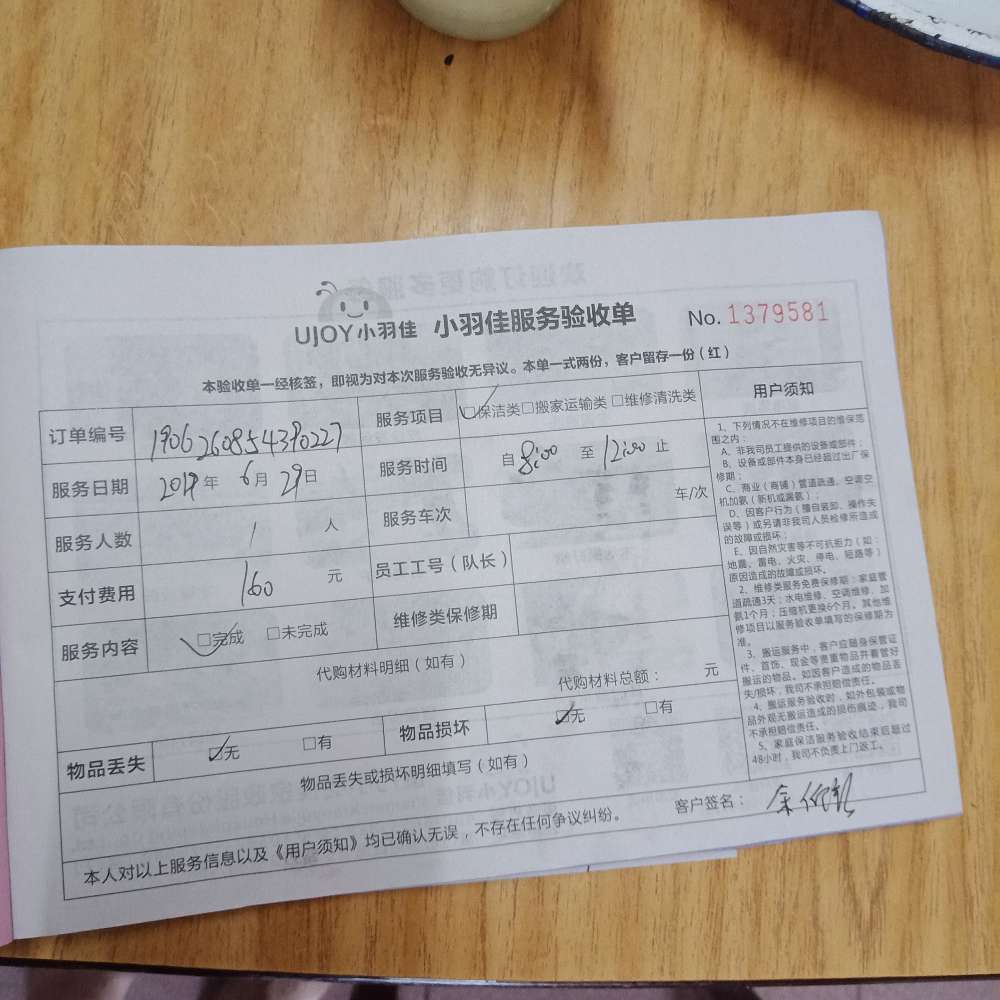 UJOY小羽佳 小羽佳服务验收单 No. 1379581
本验收单一经核签，即视为对本次服务验收无异议。本单一式两份，客户留存一份（红）
订单编号 1906260854390227 服务项目 ☑保洁类☐搬家运输类 ☐维修清洗类
服务日期 2019年 6月 29日 服务时间 自 8:00 至 12:00 止
服务人数 1 人 服务车次 车/次
支付费用 160 元 员工工号（队长）
服务内容 ☑完成 ☐未完成 维修类保修期
代购材料明细（如有）
代购材料总额： 元
物品丢失 ☑无 ☐有 物品损坏 ☑无 ☐有
物品丢失或损坏明细填写（如有）
客户签名：
本人对以上服务信息以及《用户须知》均已确认无误，不存在任何争议纠纷。
用户须知
1、下列情况不在维修项目的维保范
围之内：
A、非我司员工提供的设备或部件；
B、设备或部件本身已经超过出厂保
修期；
C、商业（商铺）管道疏通、空调空
机加氨（新机或漏氨）；
D、因客户行为（擅自装卸、操作失
误等）或另请非我司人员检修所造成
的故障或损坏；
E、因自然灾害等不可抗拒力（如：
地震、雷电、火灾、停电、短路等）
原因造成的故障或损坏。
2、维修类服务免费保修期：家庭管
道疏通3天；水电维修、空调维修、加
氨1个月；压缩机更换6个月。其他维
修项目以服务验收单填写的保修期为
准。
3、搬运服务中，客户应随身保管证
件、首饰、现金等贵重物品并看管好
搬运的物品。如因客户造成的物品丢
失/损坏，我司不承担赔偿责任。
4、搬运服务验收时，如外包装或物
品外观无搬运造成的损伤痕迹，我司
不承担赔偿责任。
5、家庭保洁服务验收结束后超过
48小时，我司不负责上门返工。